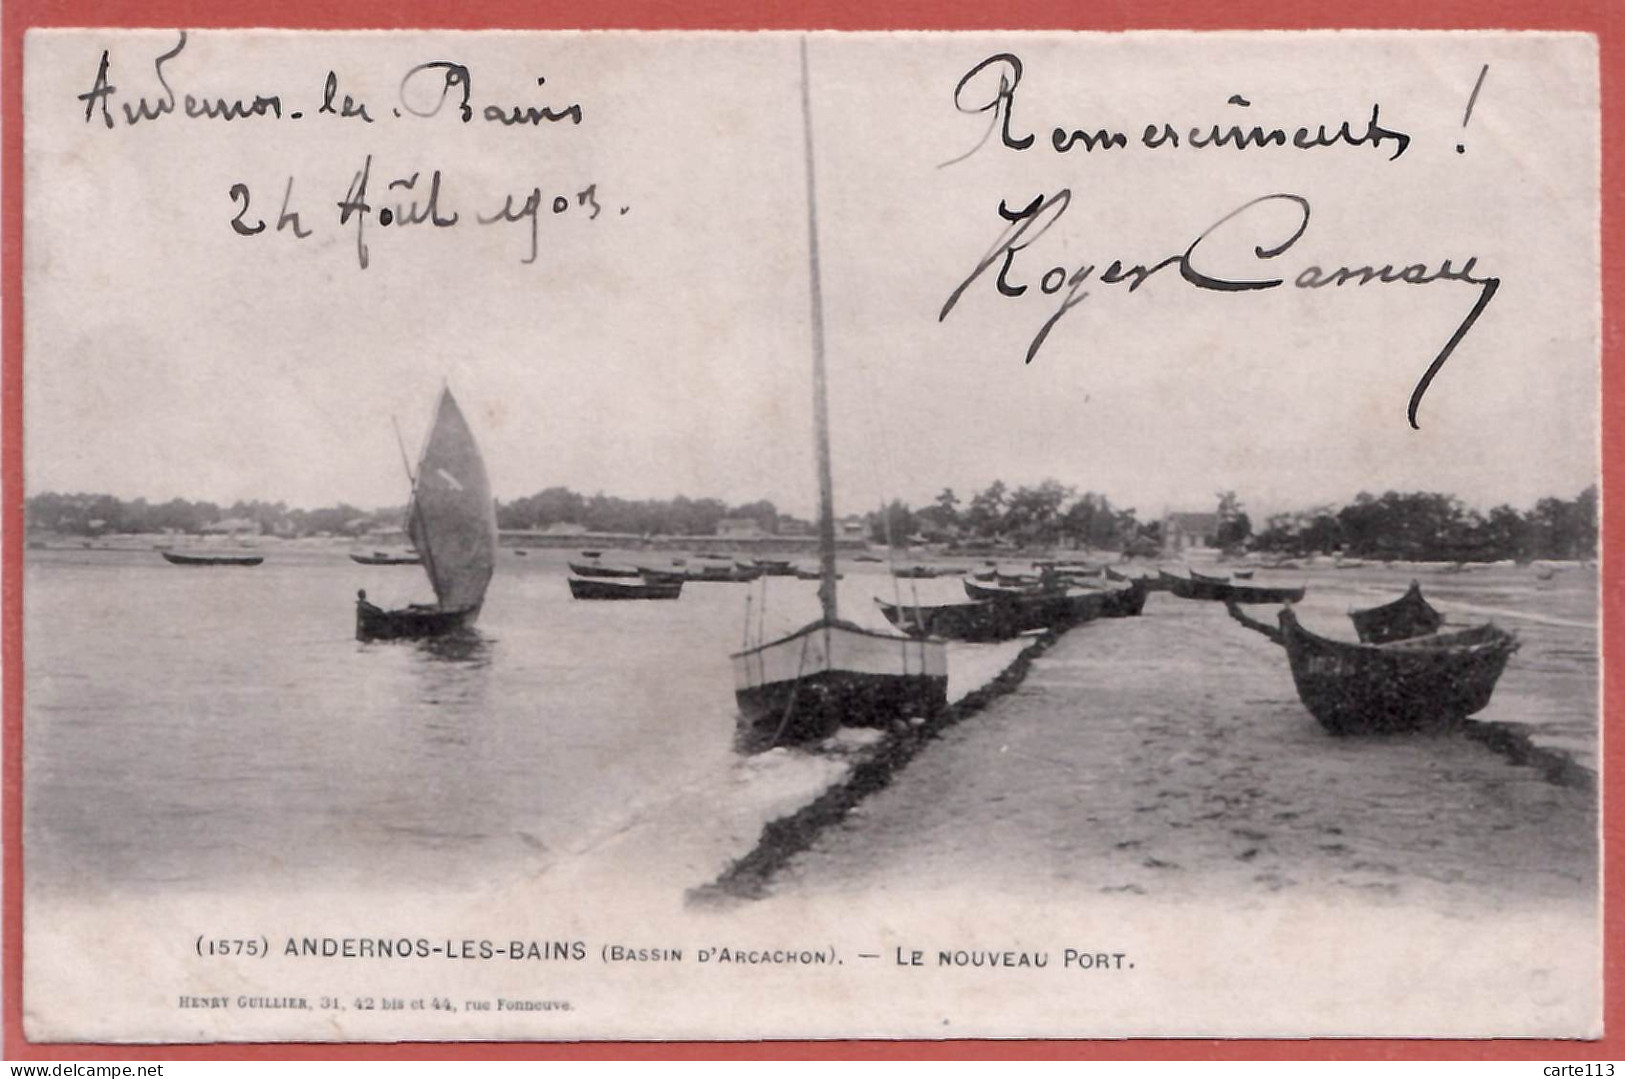 Andernos-les-Bains
24 Août 1903.
Remerciments !
Roger
(1575) ANDERNOS-LES-BAINS (BASSIN D'ARCACHON). — LE NOUVEAU PORT.
HENRY GUILLIER, 31, 42 bis et 44, rue Fonneuve.
delcampe.net
carte113